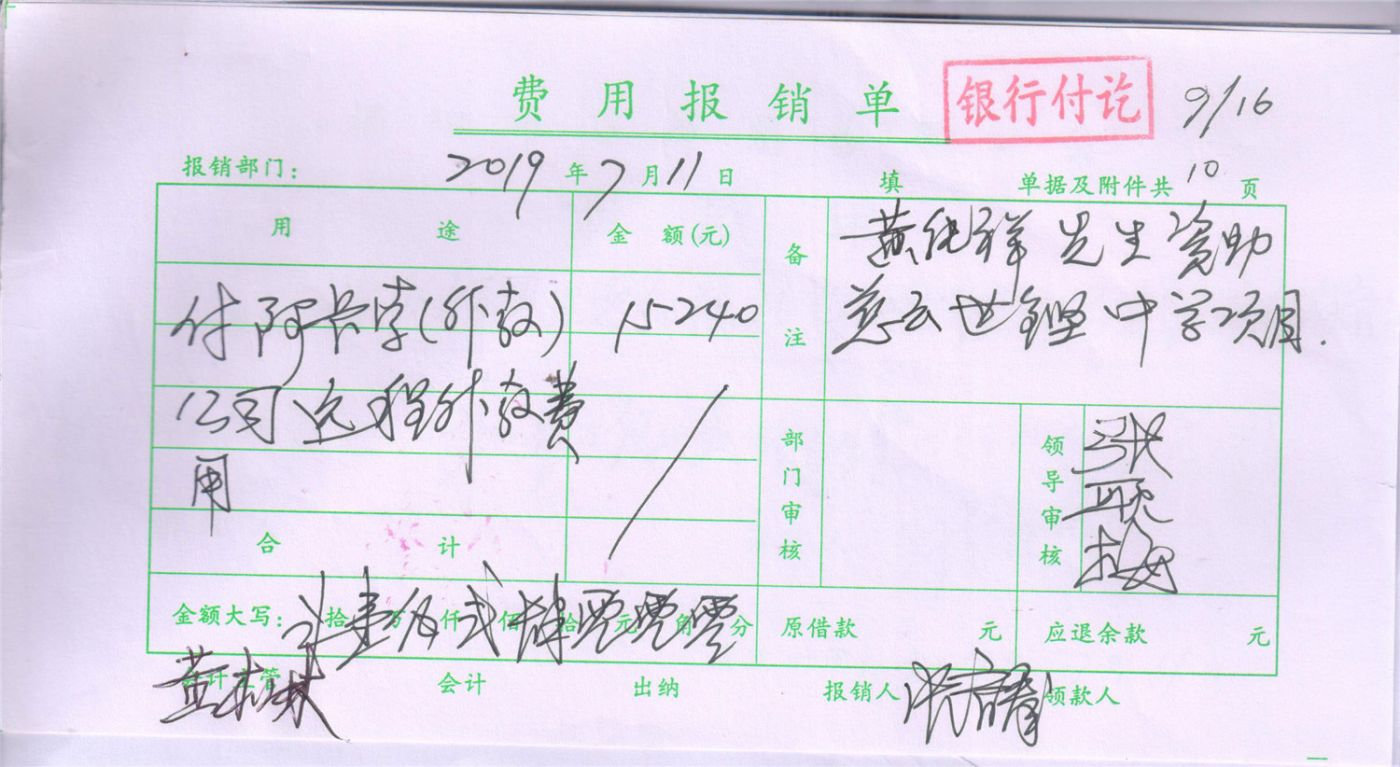 费用报销单 银行付讫 9/16
报销部门: 2019年7月11日 填 单据及附件共10页
用途 金额(元) 备注 黄化祥先生资助
慈云世铿中学项目.
付阿卡索(外教) 15240
公司远程外教费
用
部门审核 领导审核
合计
金额大写: 拾壹万伍仟弍佰肆拾零元零角零分 原借款 元 应退余款 元
会计主管 会计 出纳 报销人 领款人